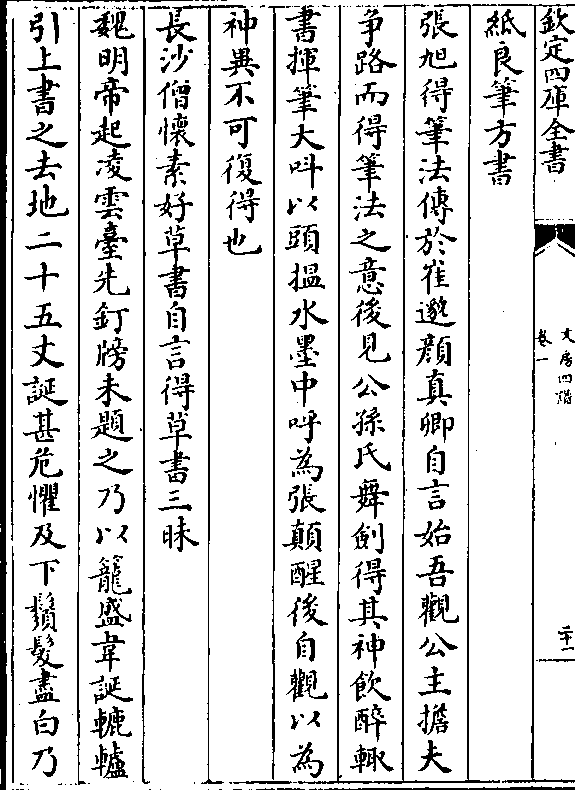 欽定四庫全書
文房四譜
卷一
二十一
紙良筆方書
張旭得筆法傳於崔邈顔真卿自言始吾觀公主擔夫
争路而得筆法之意後見公孫氏舞劍得其神飲醉輙
書揮筆大呌以頭揾水墨中呼為張顛醒後自觀以為
神異不可復得也
長沙僧懷素好草書自言得草書三昧
魏明帝起凌雲臺先釘牓未題之乃以籠盛韋誕轆轤
引上書之去地二十五丈誕甚危懼及下鬚髮盡白乃